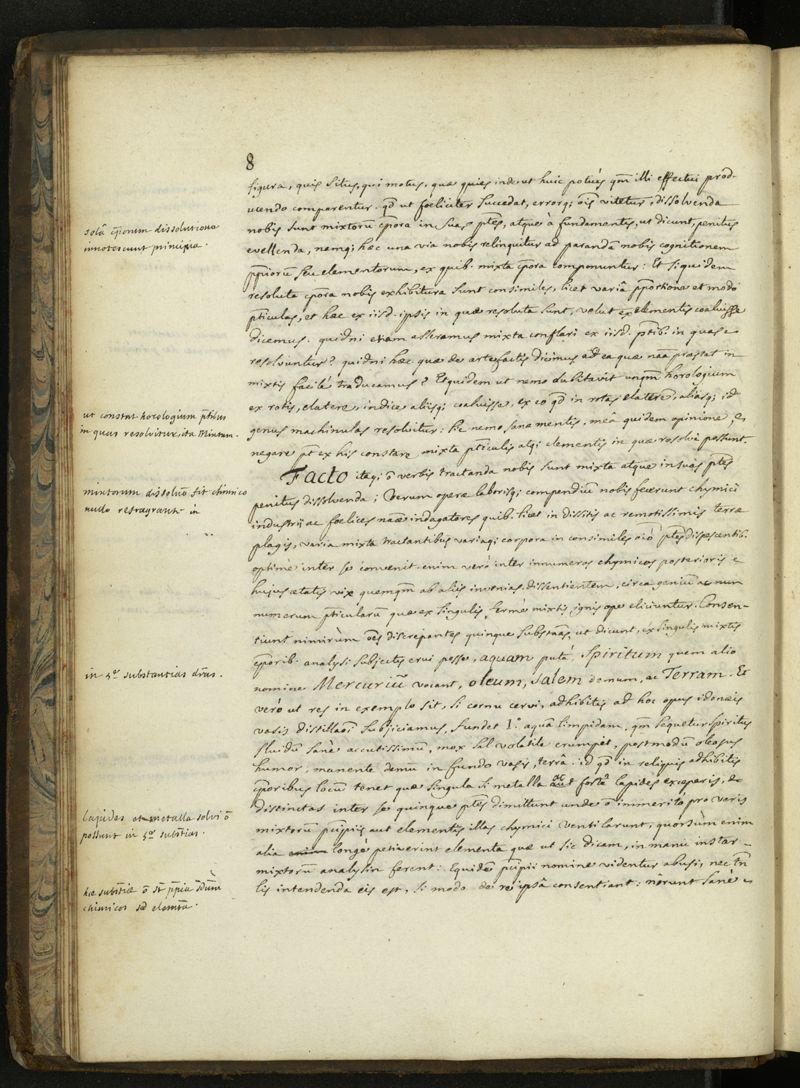 8
figura, quis situs, qui motus, quæ quies inde ut huic potius qm̃ illi effectui prod-
ucendo comparentur. qd ut fœliciter succedat, errorq; oĩs vitetur, dissolvenda
nobis sunt mixtorũ cp̃ora in suas ptes, atque à fundamentis, ut dicunt, penitus
evellenda, namq; hæc una via nobis relinquitur ad parandã nobis cognitionem
ppiorũ seu elementorum, ex quib. mixta cp̃ora componuntur: Et siquidem
resoluta cp̃ora nobis exhibitura sunt consimiles, licet variâ pportione et modo
pticulas, et hæc ex iisd. ipsis in quæ resoluta sunt, velut ex elementis coaluisse
dicemus. quidni etiam asseramus mixta conflari ex iisd. ptib. in quas
resolvuntur? quidni hæc quæ de artefactis dicimus ad ea quæ naã præstat in
mixtis facilè traducamus? Etquidem ut nemo dubitavit unqm̃ horologium
ex rotis, elatere, indice aliisq; coaluisse, ex eo qd in rotas elatere, aliasq; id
genus machinulas resolvitur: sic nemo sanæ mentis, meâ quidem opinione,
negare pt ex his constare mixta pticulis atq; elementis in quæ resolvi possunt.
Facto itaq; õ verbis tractanda nobis sunt mixta atque in suas ptes
penitus dissolvenda; Verum operæ laborisq; compendiũ nobis fecerunt chymici
industrii ac fœlices naæ indagatores quib. licet in dissitis ac remotissimis terræ
plagis, varia mixta tractantibus variaq; corpora in consimiles oĩo ptes dispescentib.
optime inter se convenit. enim vero inter innumeros chymicos posterioris
hujus ætatis vix quemqm̃ ab aliis invenias dissentientem, circa genium ac num
numerum pticularũ quæ ex singulis ferme mixtis ignis ope eliciuntur. Consen-
tiunt nimirùm oẽs discrepantes quinque substãas, ut dicunt, ex singulis mixtis
cp̃orib. analysi subjectis erui posse, aquam putà, Spiritum quem alio
nomine Mercuriũ vocant, oleum, salem demum, ac Terram. Et
verò ut res in exemplo sit, si cornu cervi, adhibitis ad hoc opus idoneis
vasis distillaõi subjiciamus, fundet 1º aquã limpidam, qm̃ sequetur spiritus
fluidũ sanè accutissimũ, mox sal volatile erumpet, postmodũ oleosus
humor, manente demũ in fundo vasis, terrâ. id qd in reliquis adhibitis
cp̃oribus locũ tenet quæ singula si metalla ac fortẽ lapides exceperis,
distinctas inter se quinque ptes dimittunt unde õ immerito pro veris
mixtorũ pcipiis aut elementis illas chymici ventilarunt, quorsùm enim
alia longè petiverint elementa quæ ut sic dicam, in manu instar
mixtorũ analysin ferent: Equidẽ pcipii nomine videntur abusi, nec tñ
lis intendenda eis est, si modo de re ipsâ consentiant: nôrunt sanè
solâ cp̃orum dissolutione
innotescunt principia.
ut constat horologium ptibus
in quas resolvitur, ita mixtum.
mixtorum dissolũo fit chimico
nullo refragrante in
in 5ẽ substantias dr̃as.
lapides et metalla solvi õ
possunt in 5ẽ substias.
hæ substiæ õ st ppia scdùm
chimicos sed elemta.